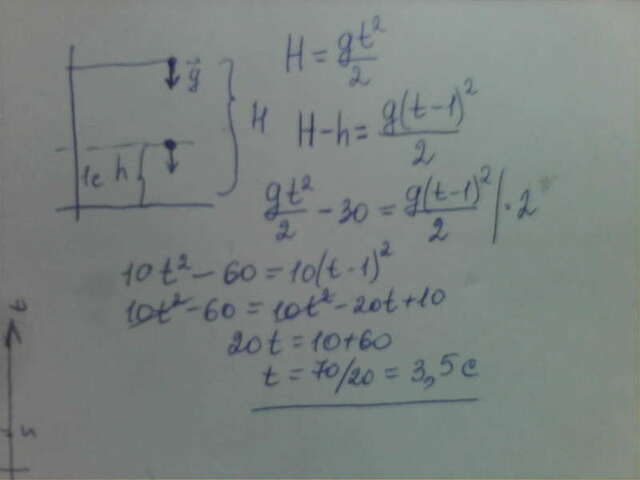 H = gt²/2
g⃗
H
H-h = g(t-1)²/2
1c h
gt²/2 - 30 = g(t-1)²/2 |·2
10t² - 60 = 10(t-1)²
10t² - 60 = 10t² - 20t + 10
20t = 10+60
t = 70/20 = 3,5 c